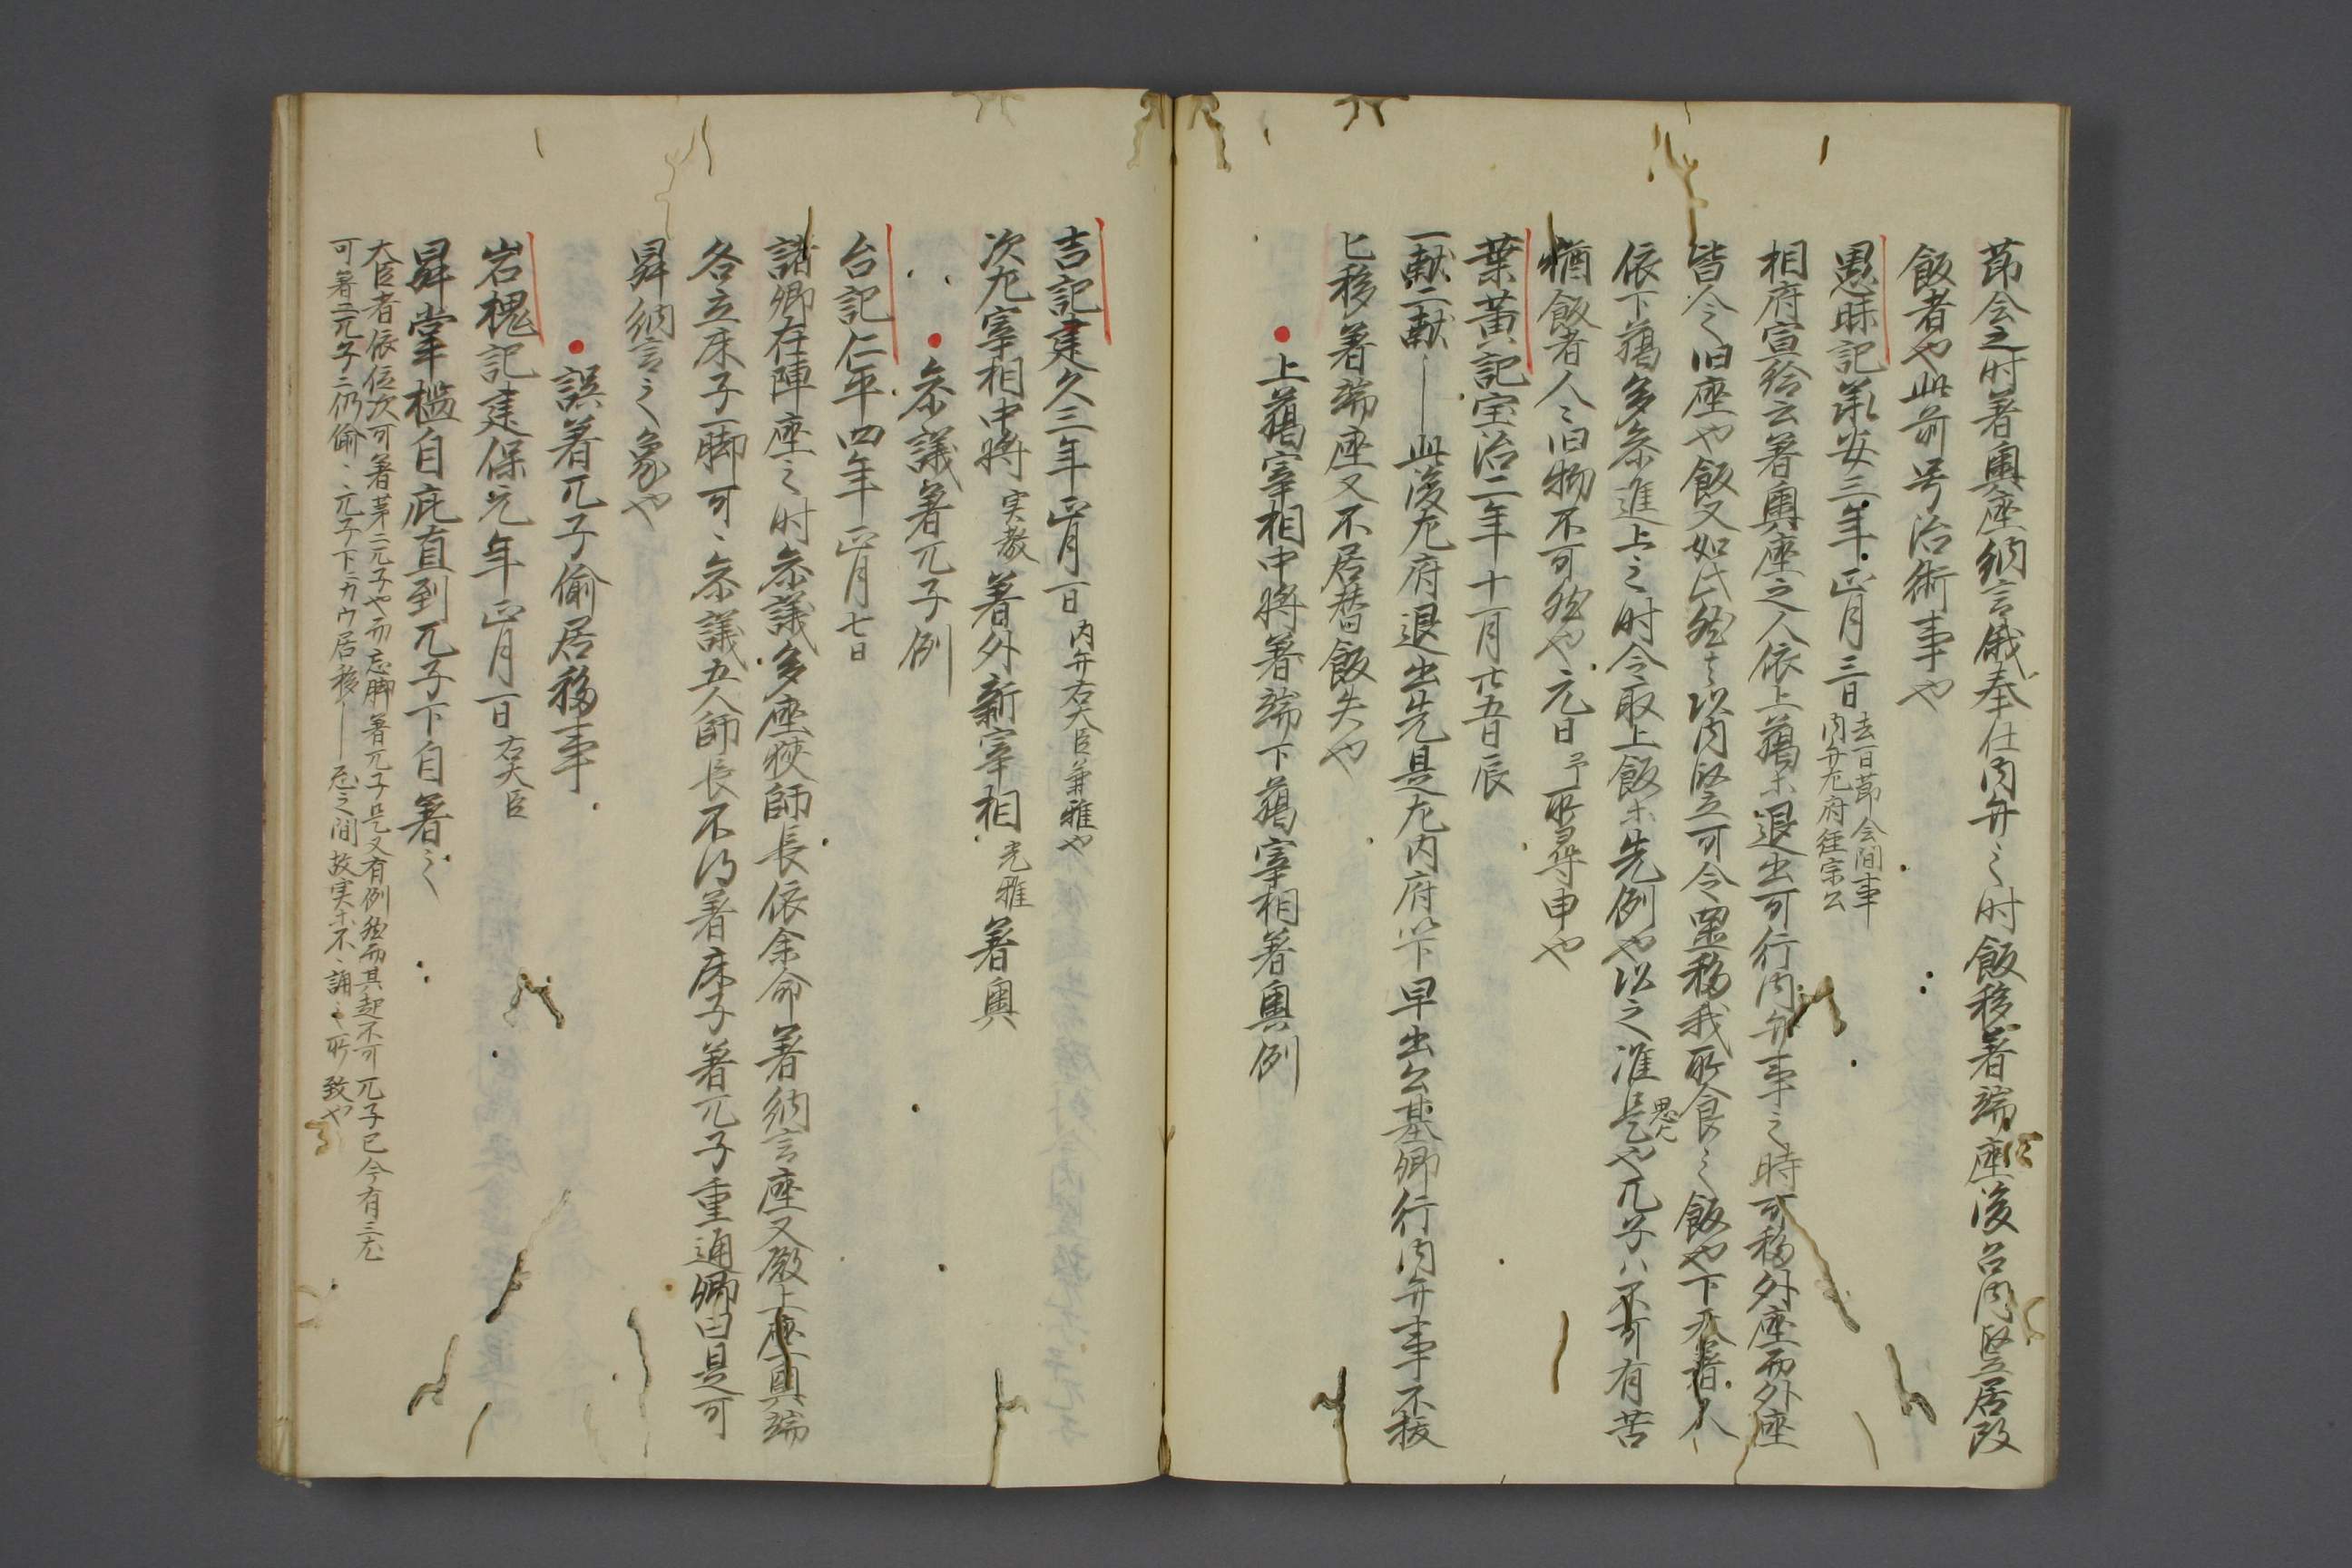 節会之时着奥座納言俄奉仕内弁之时飯移着端座後召内竪居改
飯者や此前号治術事や
愚昧記承安三年正月三日
去一日節会間事
内弁左府経宗公
相府宣給云着奥座之人依上﨟未退出可行内弁事之時可移外座而外座
皆今旧座や飯又如此然者以内竪可令置移我所食之飯や下
依下﨟多参進上之时令取上飯未先例や以之准是や兀子ハ不可有苦
猶飯者人之旧物不可然や元日予所尋申や
葉黄記宝治二年十一月廿五日辰
一献二献――此後左府退出先是左内府以下早出公基卿行内弁事不移
已移着端座又不居替飯失や
上﨟宰相中将着端下﨟宰相着奥例
吉記建久三年正月一日 内弁右大臣兼雅や
次左宰相中将 実教 着外新宰相 光雅 着奥
参議着兀子例
台記仁平四年正月七日
諸卿在陣座之时参議多座狭師長依余命着納言座又殿上座奥端
各立床子一脚可ミ参議五人師長不得着床子着兀子重通卿曰是可
昇納言之象や
誤着兀子偸居移事
岩槐記建保元年正月一日 右大臣
昇堂檻自庇直到兀子下自着之
大臣者依位次可着第二兀子や而忘脚着兀子是又有例然而其起不可兀子已今有三尤
可着二兀子ニ仍偸ミ兀子下ニカウ居移――忩之間故実等不ミ誦之所致や